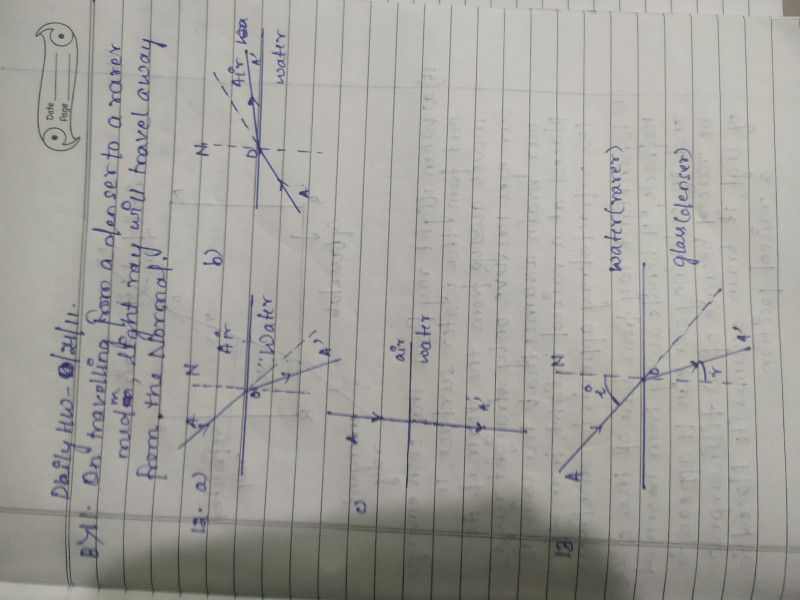 Date
Page
Daily HW- 21/11.
11. On travelling from a denser to a rarer
medm, light ray will travel away
from the Normal.
12. a) A N Air
O Water
A'
b) N Air
O A' water
A
c) A air
water
A'
13. A i N water(rarer)
O glass(denser)
r A'